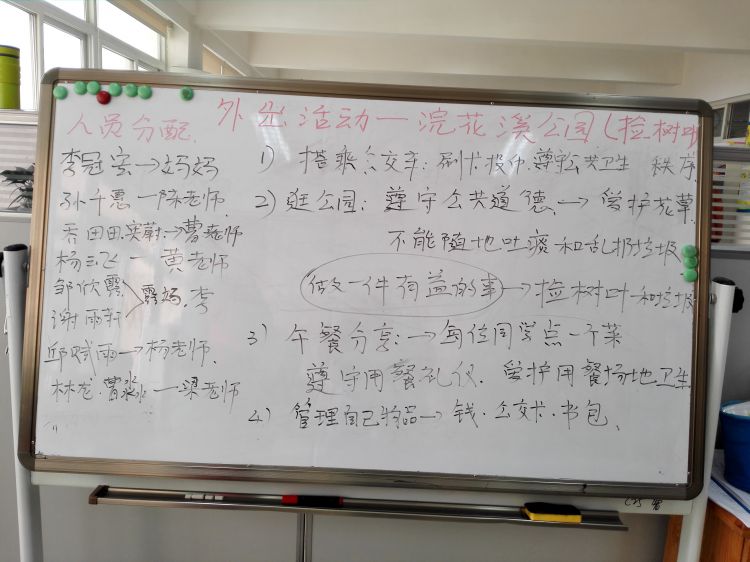 外出活动—浣花溪公园(捡树叶
人员分配.
李冠宏→妈妈
孙千惠—陈老师
田田.奕蔚→曹老师
杨云飞—黄老师
邹欣露
谢雨轩
露妈.李
邱斌雨→杨老师.
林龙.曾淼—梁老师
1) 搭乘公交车:刷卡.投币.尊公共卫生 秩序
2) 逛公园: 遵守公共道德.→爱护花草.
不能随地吐痰和乱扔垃圾
做一件有益的事→捡树叶和垃圾
3) 午餐分享:→每位同学点一个菜
遵守用餐礼仪.爱护用餐场地卫生
4) 管理自己物品→钱.公交卡.书包.